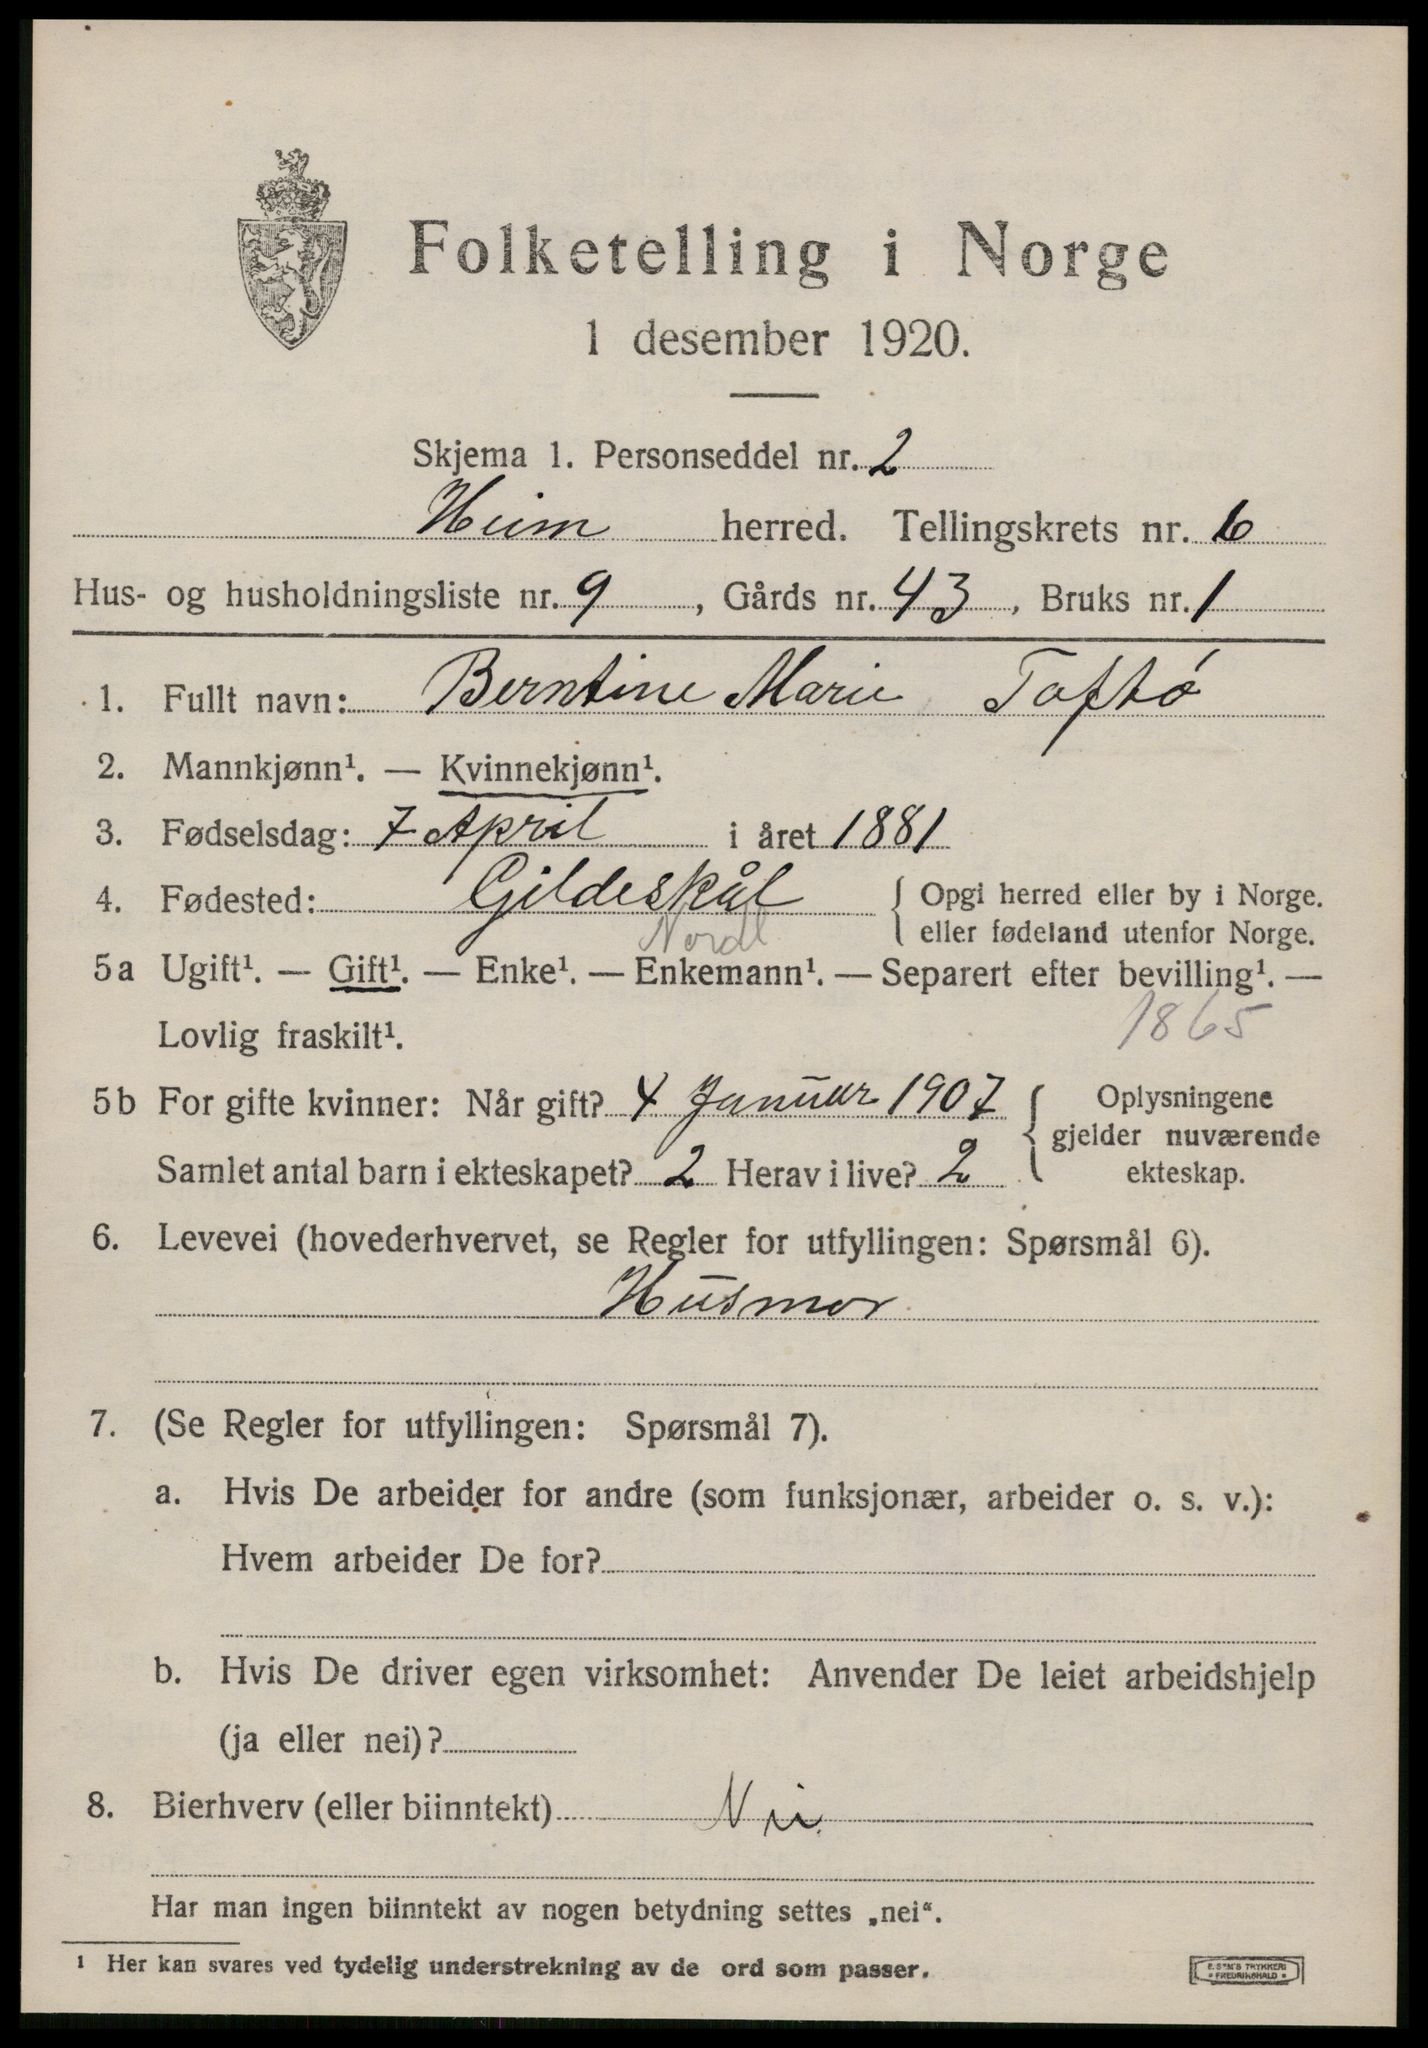 Folketelling i Norge
1 desember 1920.
Skjema 1. Personseddel nr. 2
Heim herred. Tellingskrets nr. 6
Hus- og husholdningsliste nr. 9, Gårds nr. 43, Bruks nr. 1
1. Fullt navn: Berntine Marie Toftó
2. Mannkjønn¹. — Kvinnekjønn¹.
3. Fødselsdag: 7 April i året 1881
4. Fødested: Gildeskål { Opgi herred eller by i Norge.
Nordl { eller fødeland utenfor Norge.
5a Ugift¹. — Gift¹. — Enke¹. — Enkemann¹. — Separert efter bevilling¹. —
Lovlig fraskilt¹. 1865
5b For gifte kvinner: Når gift? 4 Januar 1907 { Oplysningene
gjelder nuværende
Samlet antal barn i ekteskapet? 2 Herav i live? 2 ekteskap.
6. Levevei (hovederhvervet, se Regler for utfyllingen: Spørsmål 6).
Husmor.
7. (Se Regler for utfyllingen: Spørsmål 7).
a. Hvis De arbeider for andre (som funksjonær, arbeider o. s. v.):
Hvem arbeider De for?
b. Hvis De driver egen virksomhet: Anvender De leiet arbeidshjelp
(ja eller nei)?
8. Bierhverv (eller biinntekt) Nei.
Har man ingen biinntekt av nogen betydning settes „nei“.
¹ Her kan svares ved tydelig understrekning av de ord som passer.
E. SEM'S TRYKKERI
• FREDRIKSHALD •